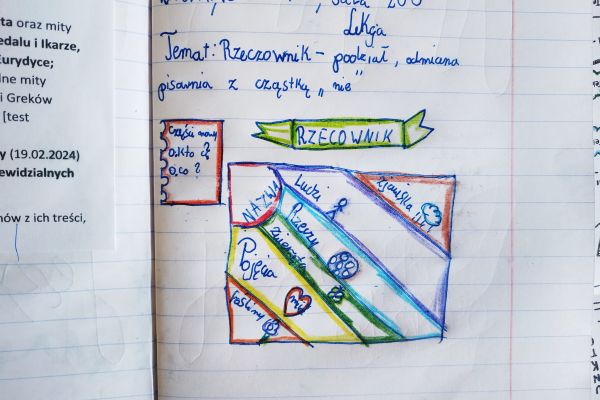 ta oraz mity
edalu i Ikarze,
urydyce;
lne mity
i Greków
[test
y (19.02.2024)
ewidzialnych
nów z ich treści,
Lekcja
Temat: Rzeczownik - podział, odmiana
pisownia z cząstką „nie"
RZECOWNIK
Części mowy
o.kto ?
o,co ?
NAZWA
Ludzi
Zjawiska
Rzeczy
Zwierzęta
Pojęcia
Rośliny